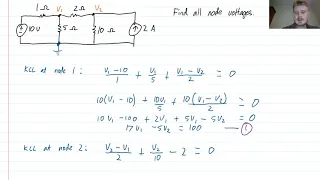 1 Ω V₁ 2 Ω V₂
Find all node voltages.
10V 5 Ω 10 Ω 2 A
KCL at node 1: (V₁ - 10)/1 + V₁/5 + (V₁ - V₂)/2 = 0
10(V₁ - 10) + 10V₁/5 + 10(V₁ - V₂)/2 = 0
10V₁ - 100 + 2V₁ + 5V₁ - 5V₂ = 0
17V₁ - 5V₂ = 100 — ①
KCL at node 2: (V₂ - V₁)/2 + V₂/10 - 2 = 0